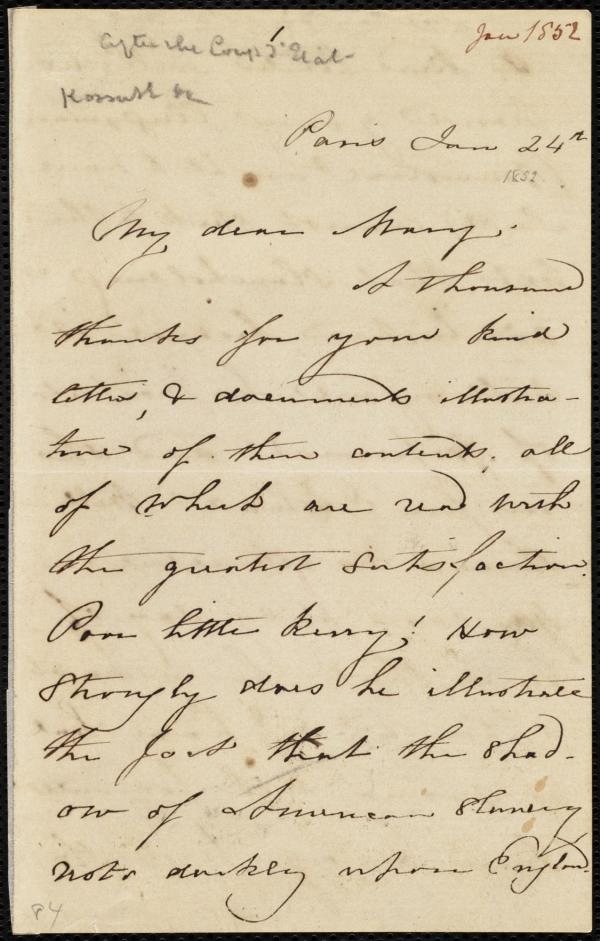 After the Coup d'Etat-
Jan 1852
Kossuth &c
Paris Jan 24th
1852
My dear Mary.
A thousand
thanks for your kind
letter, & documents illustra-
tive of their contents; all
of which are read with
the greatest satisfaction.
Poor little Kerry! How
strongly does he illustrate
the fact that the shad-
ow of American slavery
rests darkly upon England.
84